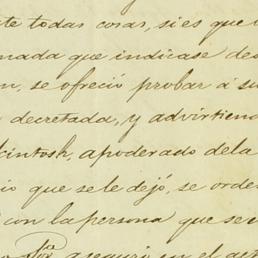 te todas cosas, si es que
mada que indicase des
n, se ofreció probar á su
decretada, y advirtien
kintosh, apoderado dela
io que sele dejó, se orde
con la persona que se
aseguró en el act